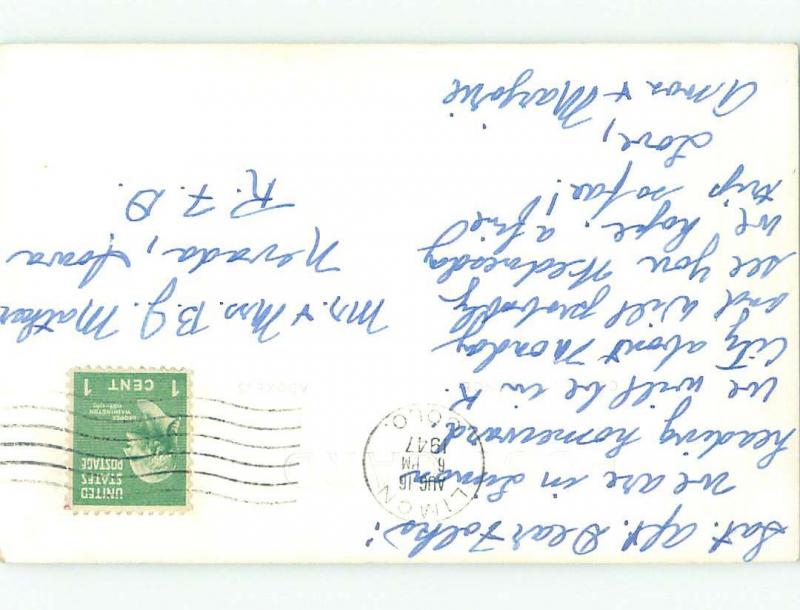 Sat. aft. Dear Folks:
We are in Limon
heading homeward
We will be in K.
City about Monday
and will probably
see you Wednesday
we hope. a fine
trip so far!
Love,
Amos & Marjorie
LIMON
AUG 16
6 PM
1947
COLO.
UNITED
STATES
POSTAGE
GEORGE
WASHINGTON
1789-1797
1 CENT 1
ADDRESS
Mr. & Mrs. B. J. Mather
Nevada, Iowa
R. F. D.